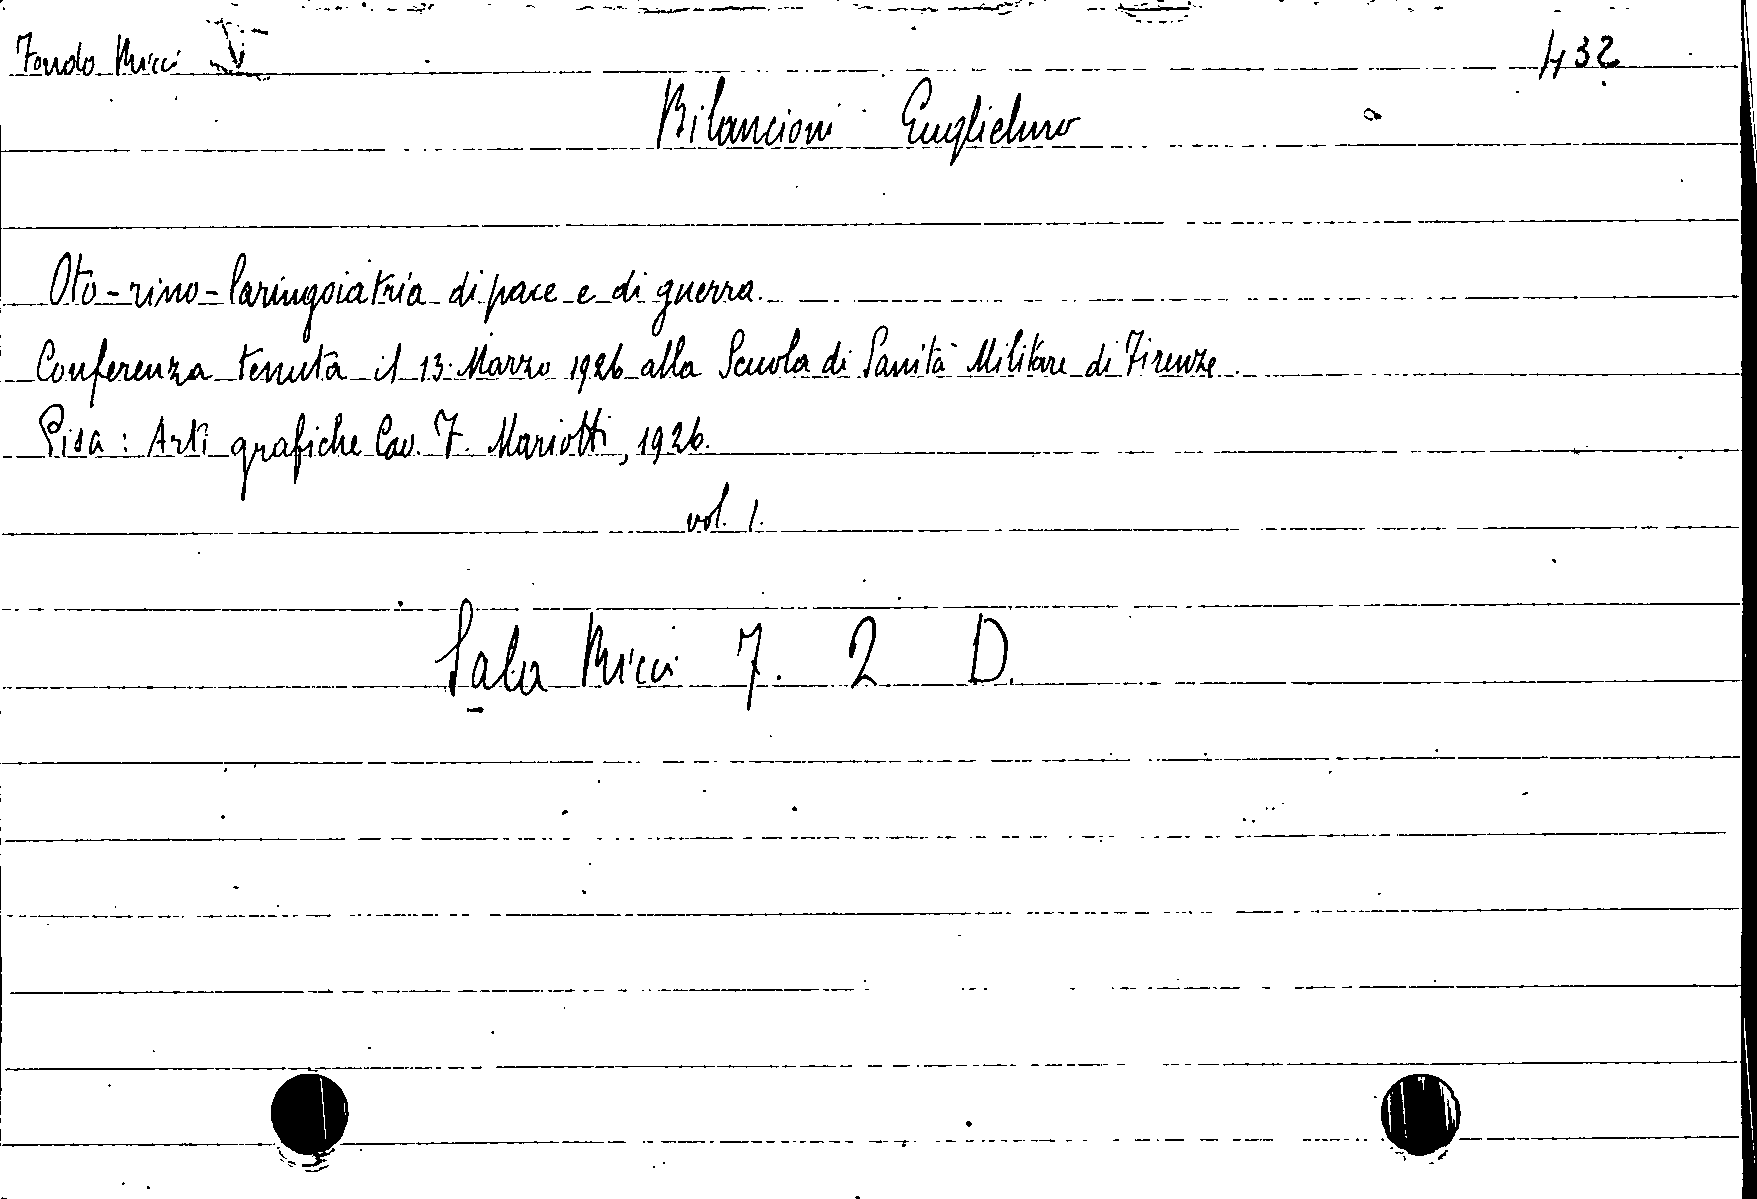 Fondo Ricci
432
Bilancioni Guglielmo
Oto-rino-laringoiatria di pace e di guerra.
Conferenza tenuta il 13 Marzo 1926 alla Scuola di Sanità Militare di Firenze.
Pisa: Arti grafiche Cav. F. Mariotti, 1926.
vol. 1.
Sala Ricci 7. 2 D.